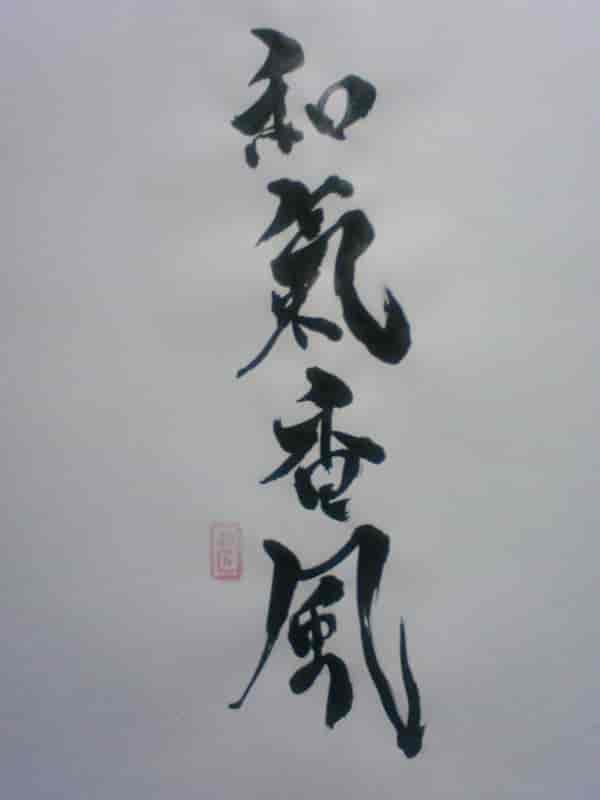 和氣香風